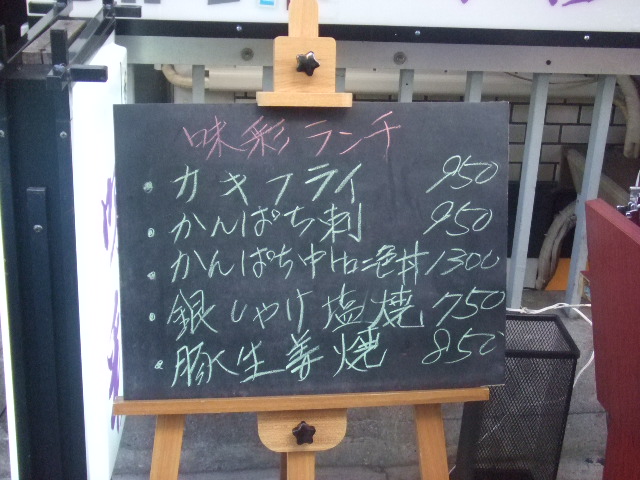 味彩ランチ
・カキフライ 950
・かんぱち刺 950
・かんぱち中トロ二色丼 1300
・銀しゃけ塩焼 750
・豚生姜焼 850